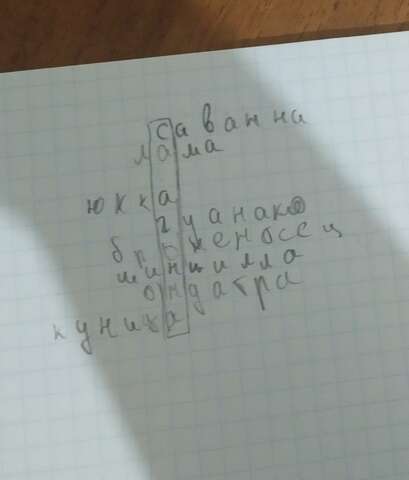 саванна
лама
юкка
гуанако
броненосец
шиншилла
ондатра
куница